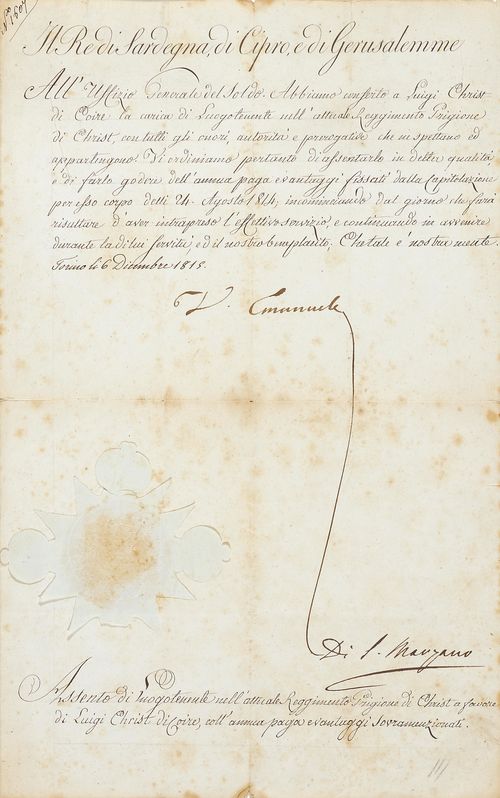 N.° 1607
Il Re di Sardegna, di Cipro, e di Gerusalemme
All' Uffizio Generale del Soldo. Abbiamo conferito a Luigi Christ
di Coire la carica di Luogotenente nell' attuale Reggimento Grigione
di Christ, con tutti gli onori, autorità e prerogative che ne spettano ed
appartengono. Vi ordiniamo pertanto di assentarlo in detta qualità
e di farlo godere dell' annua paga e vantaggi fissati dalla Capitolazione
per esso corpo delli 24 Agosto 1814, incominciando dal giorno che farà
risultare d'aver intrapreso l'effettivo servizio, e continuando in avvenire
durante la di lui servitù, ed il nostro beneplacito. Che tale è nostra mente.
Torino li 6 Dicembre 1815.
V. Emanuele
Di S. Marzano
Assento di Luogotenente nell' attuale Reggimento Grigione di Christ a favore
di Luigi Christ di Coire, coll' annua paga e vantaggi sovramenzionati.